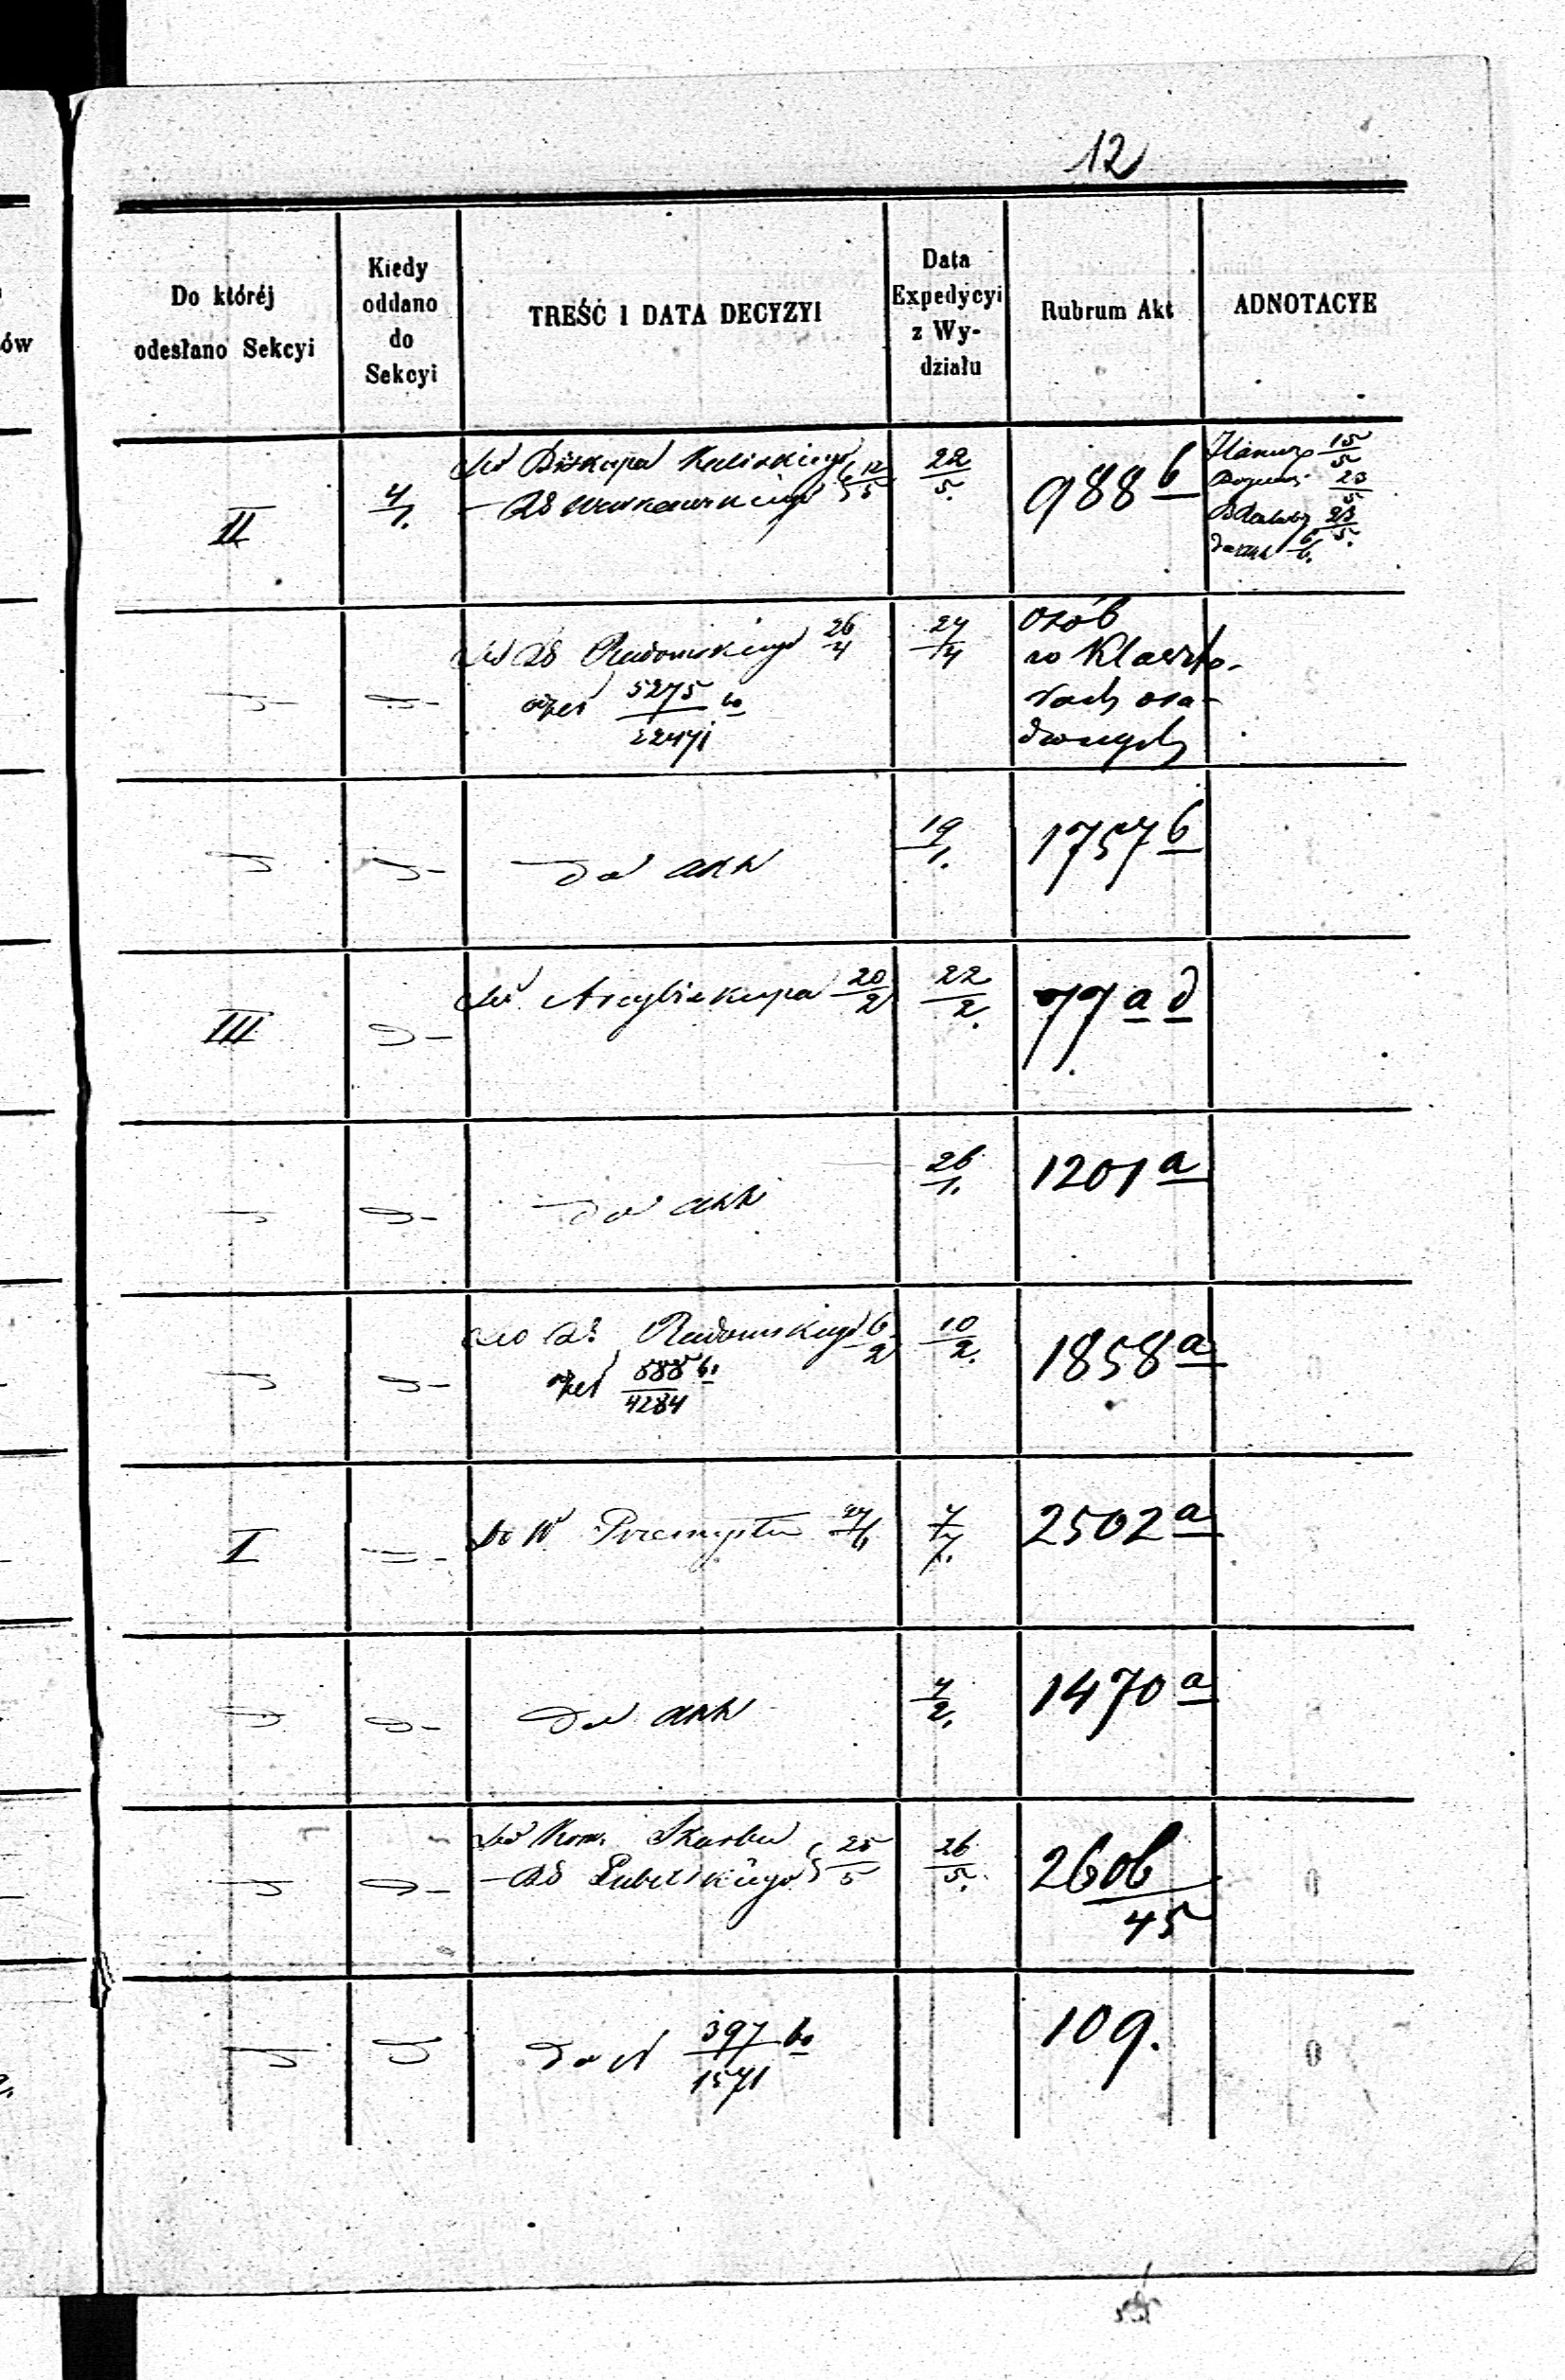 12
Do któréj odesłano Sekcyi
Kiedy oddano do Sekcyi
TREŚĆ I DATA DECYZYI
Data Expedycyi z Wydziału
Rubrum Akt
ADNOTACYE
ów
II
4/1.
Do Biskupa Kaliskiego
12/5
22/5.
988 b
15/5
23/5.
23/5.
6/6.
Do RG Radomskiego 26/4
5275/22471 bo
27/4
Osób
w Klaszto-
rach osa-
dzonych
do akt
19/1.
1757 b
III
Do Arcybiskupa 20/2
22/2.
77 a d
do akt
26/1.
1201 a
Radomskiego 6/2
888/4284 b.
10/2.
1858 a
I
Do W Przemysłu 27/6
7/7.
2502 a
do akt
7/2.
1470 a
Do Kom. Skarbu
— RG Lubelskiego 25/5
26/5.
260b/45
do N 397/1571 bo
109.